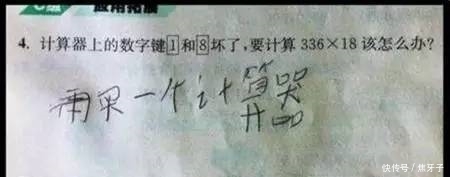 应用拓展
4. 计算器上的数字键1和8坏了,要计算336×18该怎么办?
再买一个计算器
快传号/焦牙子